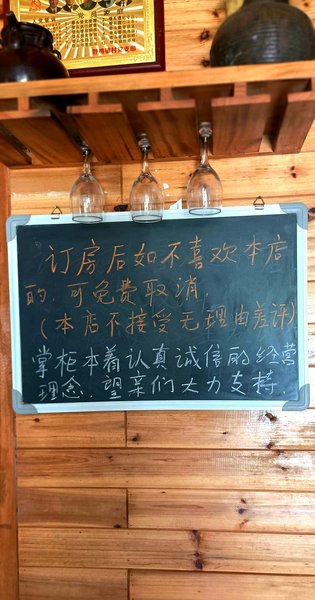 订房后如不喜欢本店
的.可免费取消.
(本店不接受无理由差评)
掌柜本着认真诚信的经营
理念.望亲们大力支持.